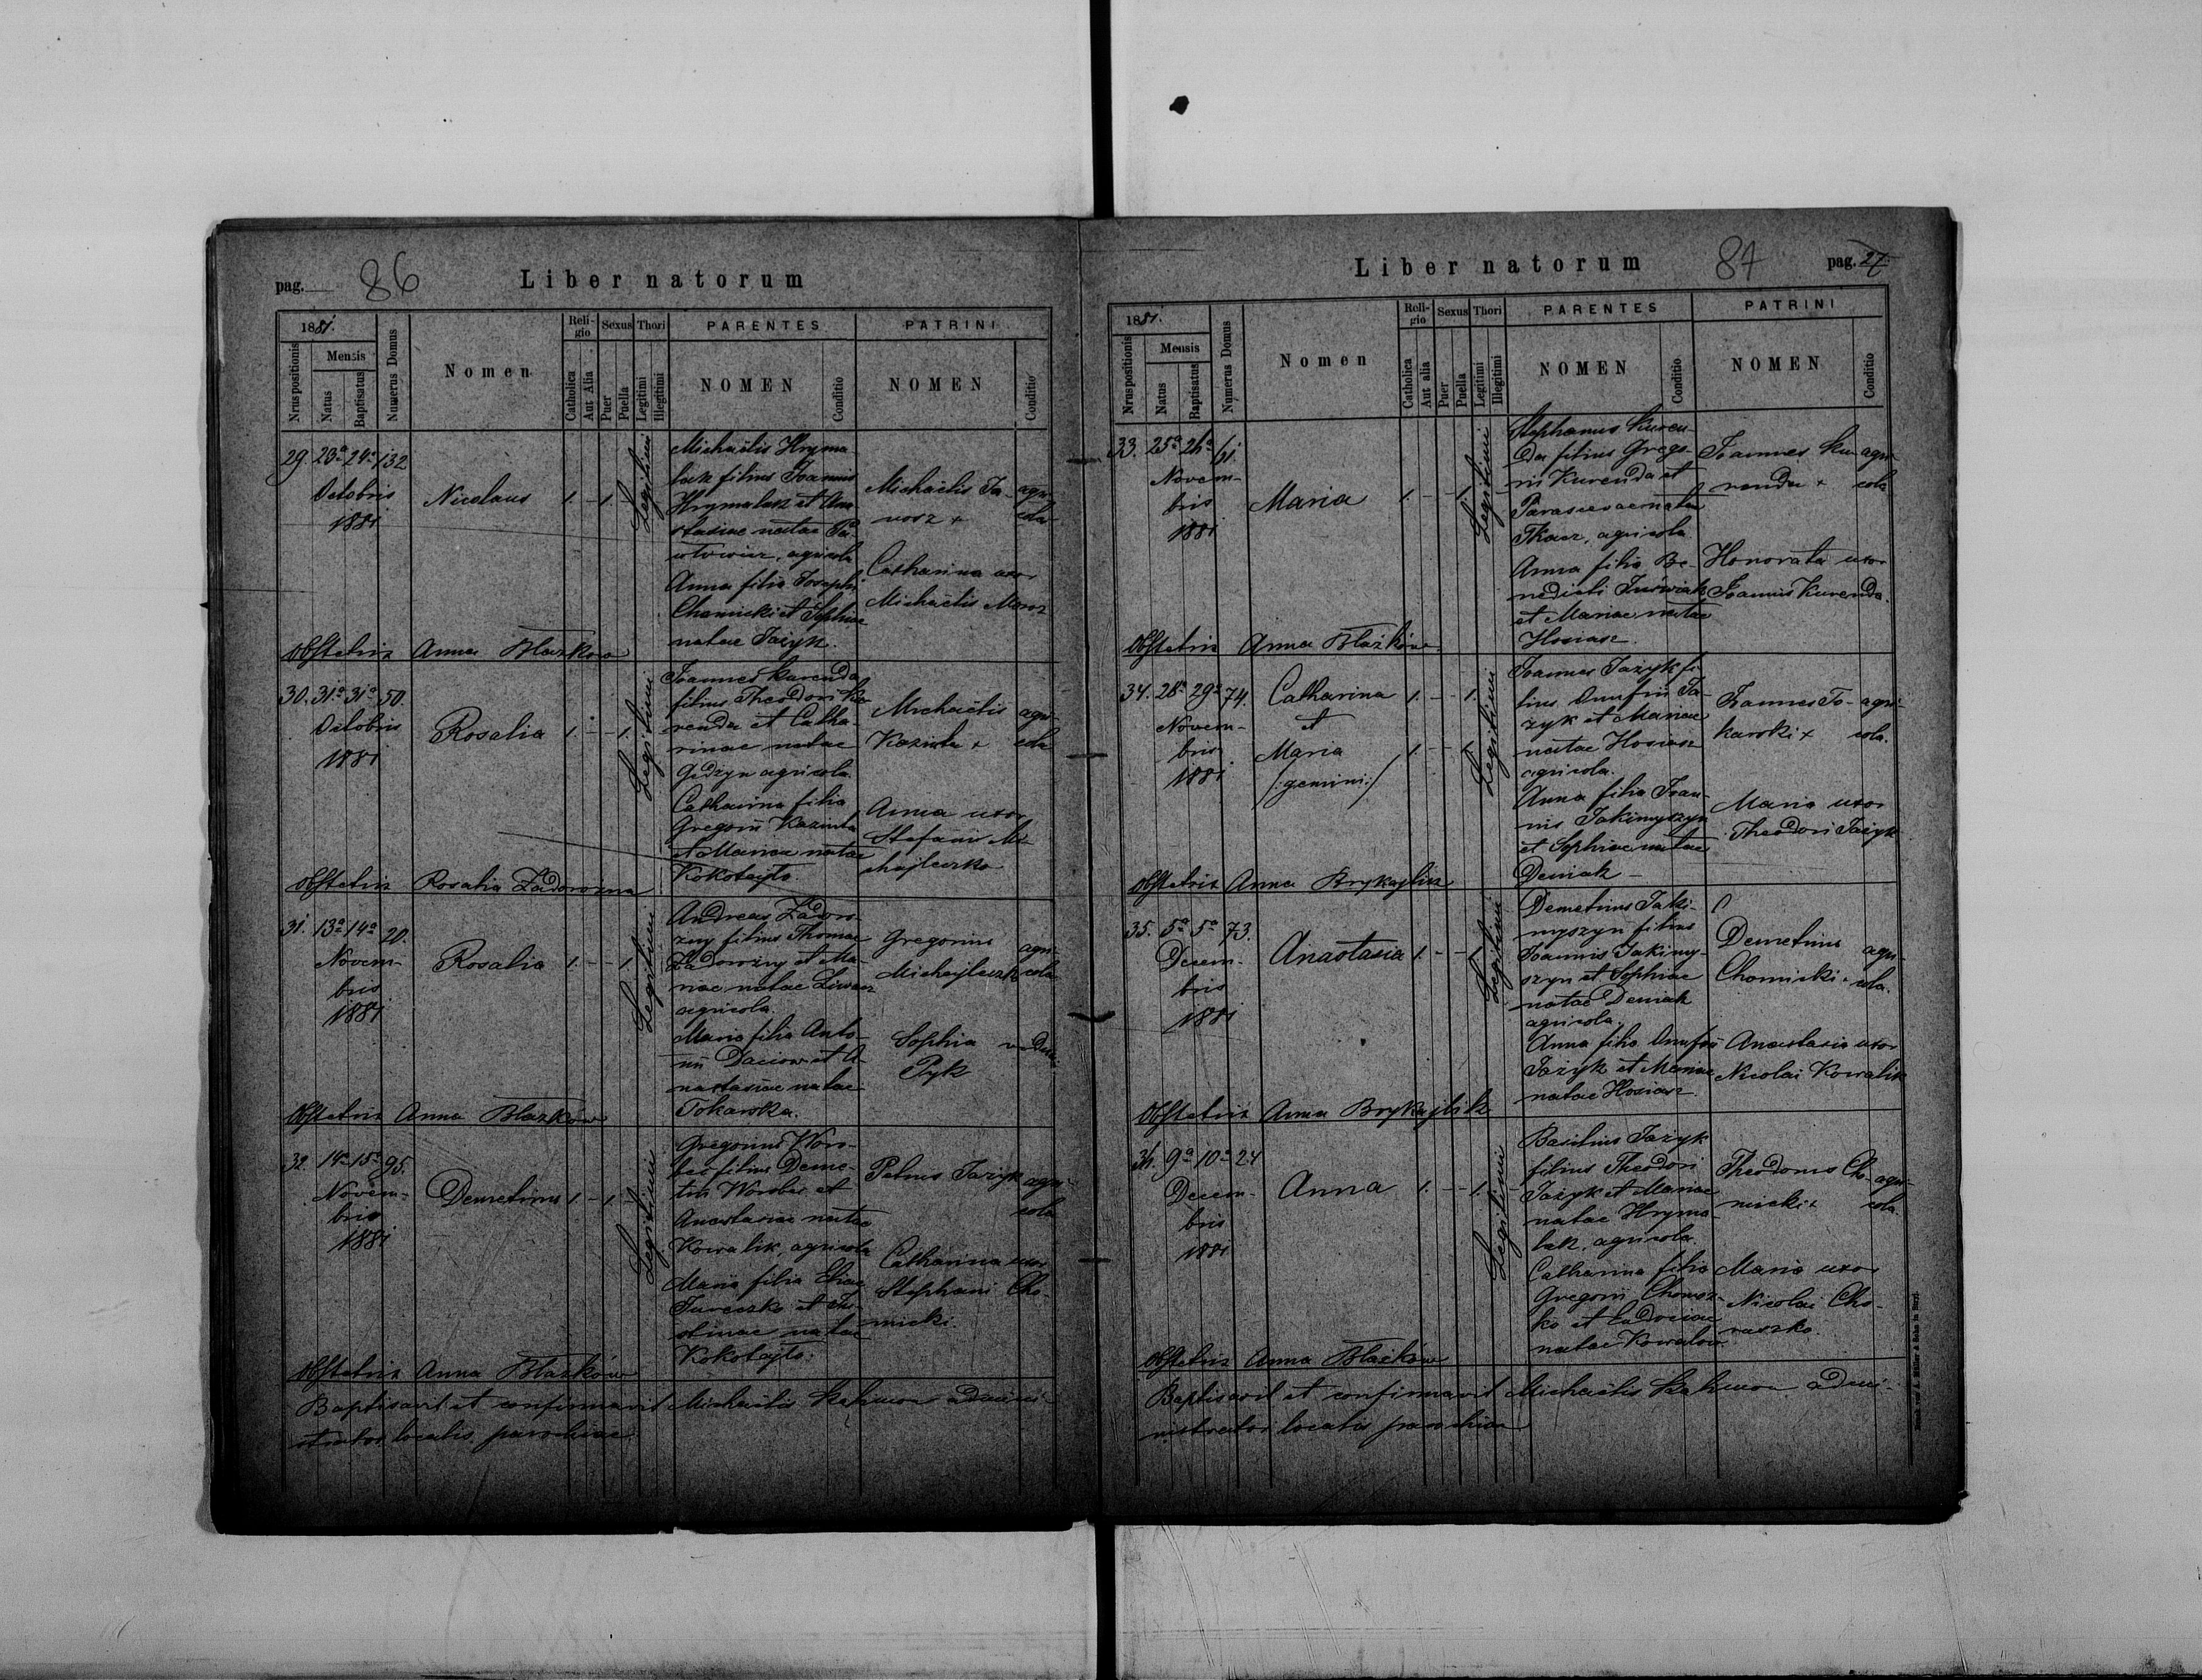 pag. 86
Liber natorum
1881.
Nrus positionis
Mensis
Natus
Baptisatus
Numerus Domus
Nomen
Religio
Catholica
Aut Alia
Sexus
Puer
Puella
Thori
Legitimi
Illegitimi
PARENTES
NOMEN
Conditio
PATRINI
NOMEN
Conditio
29. 23a 24a 132
Octobris
1881
Nicolaus
1. - 1.
Legitimi
Michaëlis Hryma-
lak filius Joannis
Hrymalak et Ana
stasiae natae Pa
włowicz, agricola
Anna filia Josephi
Chomicki et Sophiae
natae Jażyk.
Michaëlis Ja- agri-
nosz + cola
Catharina uxor
Michaëlis Moroz
Obstetrix Anna Błażków
30. 31a 31a 50.
Octobris
1881
Rosalia
1. - - 1.
Legitimi
Joannes Kurenda
filius Theodori Ku
renda et Catha-
rinae natae
Gidzyn agricola.
Catharina filia
Gregorii Kazimla
et Mariae natae
Kokotajło
Michaëlis agri-
Kazimla + cola
Anna uxor
Stefani Mi-
chajleczko
Obstetrix Rosalia Zadorożna
31. 13a 14a 20.
Novem-
bris
1881
Rosalia
1. - - 1.
Legitimi
Andreas Zadoro-
żny filius Thomae
Zadorożny et Ma-
riae natae
agricola.
Maria filia Anto-
nii Daciow et A-
nastasiae natae
Tokarska.
Gregorius agri-
Michajleczko cola
Sophia
Pyk
Obstetrix Anna Błażków
32. 14a 15a 95.
Novem-
bris
1881
Demetrius
1. - 1.
Legitimi
Gregorius Woro-
bec filius Deme-
trii Worobec et
Anastasiae natae
Kowalik, agricola
Maria filia Eliae
Jureczko et Ju-
stinae natae
Kokotajło.
Petrus Jażyk agri-
cola
Catharina uxor
Stephani Cho-
micki.
Obstetrix Anna Błażków
Baptisavit et confirmavit Michaëlis admini-
strator localis parochiae
Liber natorum
87 pag. 27
1881.
Nrus positionis
Mensis
Natus
Baptisatus
Numerus Domus
Nomen
Religio
Catholica
Aut alia
Sexus
Puer
Puella
Thori
Legitimi
Illegitimi
PARENTES
NOMEN
Conditio
PATRINI
NOMEN
Conditio
33. 25a 26a 61.
Novem-
bris
1881
Maria
1. - - 1.
Legitimi
Stephanus Kuren-
da filius Grego-
rii Kurenda et
Parascevae natae
Tkacz, agricola.
Anna filia Be-
nedicti
et Mariae natae
Hosiasz.
Joannes Ku- agri-
renda + cola
Honorata uxor
Joannis Kurenda.
Obstetrix Anna Błażków
34. 28a 29a 74.
Novem-
bris
1881
Catharina
et
Maria
/:gemini:/
1. - - 1.
1. - - 1.
Legitimi
Joannes Jażyk fi-
lius Onufrii Ja-
żyk et Mariae
natae Hosiasz
agricola.
Anna filia Joan-
nis Jakimyszyn
et Sophiae natae
Deniak -
Joannes To- agri-
karski + cola.
Maria uxor
Theodori Jażyk
Obstetrix Anna Brykajlisz
35. 5a 5a 73.
Decem-
bris
1881
Anastasia
1. - - 1.
Legitimi
Demetrius Jaki-
myszyn filius
Joannis Jakimy-
szyn et Sophiae
natae Deniak
agricola.
Anna filia Onufrii
Jażyk et Mariae
natae Hosiasz.
Demetrius agri-
Chomicki + cola.
Anastasia uxor
Nicolai Kowalik
Obstetrix Anna Brykajlisz
36. 9a 10a 24
Decem-
bris
1881
Anna
1. - - 1.
Legitimi
Basilius Jażyk
filius Theodori
Jażyk et Mariae
natae Hryma-
lak, agricola.
Catharina filia
Gregorii Chomoz-
ko et Eudociae
natae Kowalow.
Theodorus Cho- agri-
micki + cola.
Maria uxor
Nicolai Cho-
raszko.
Obstetrix Anna Błażków
Baptisavit et confirmavit Michaëlis admi-
nistrator localis parochiae